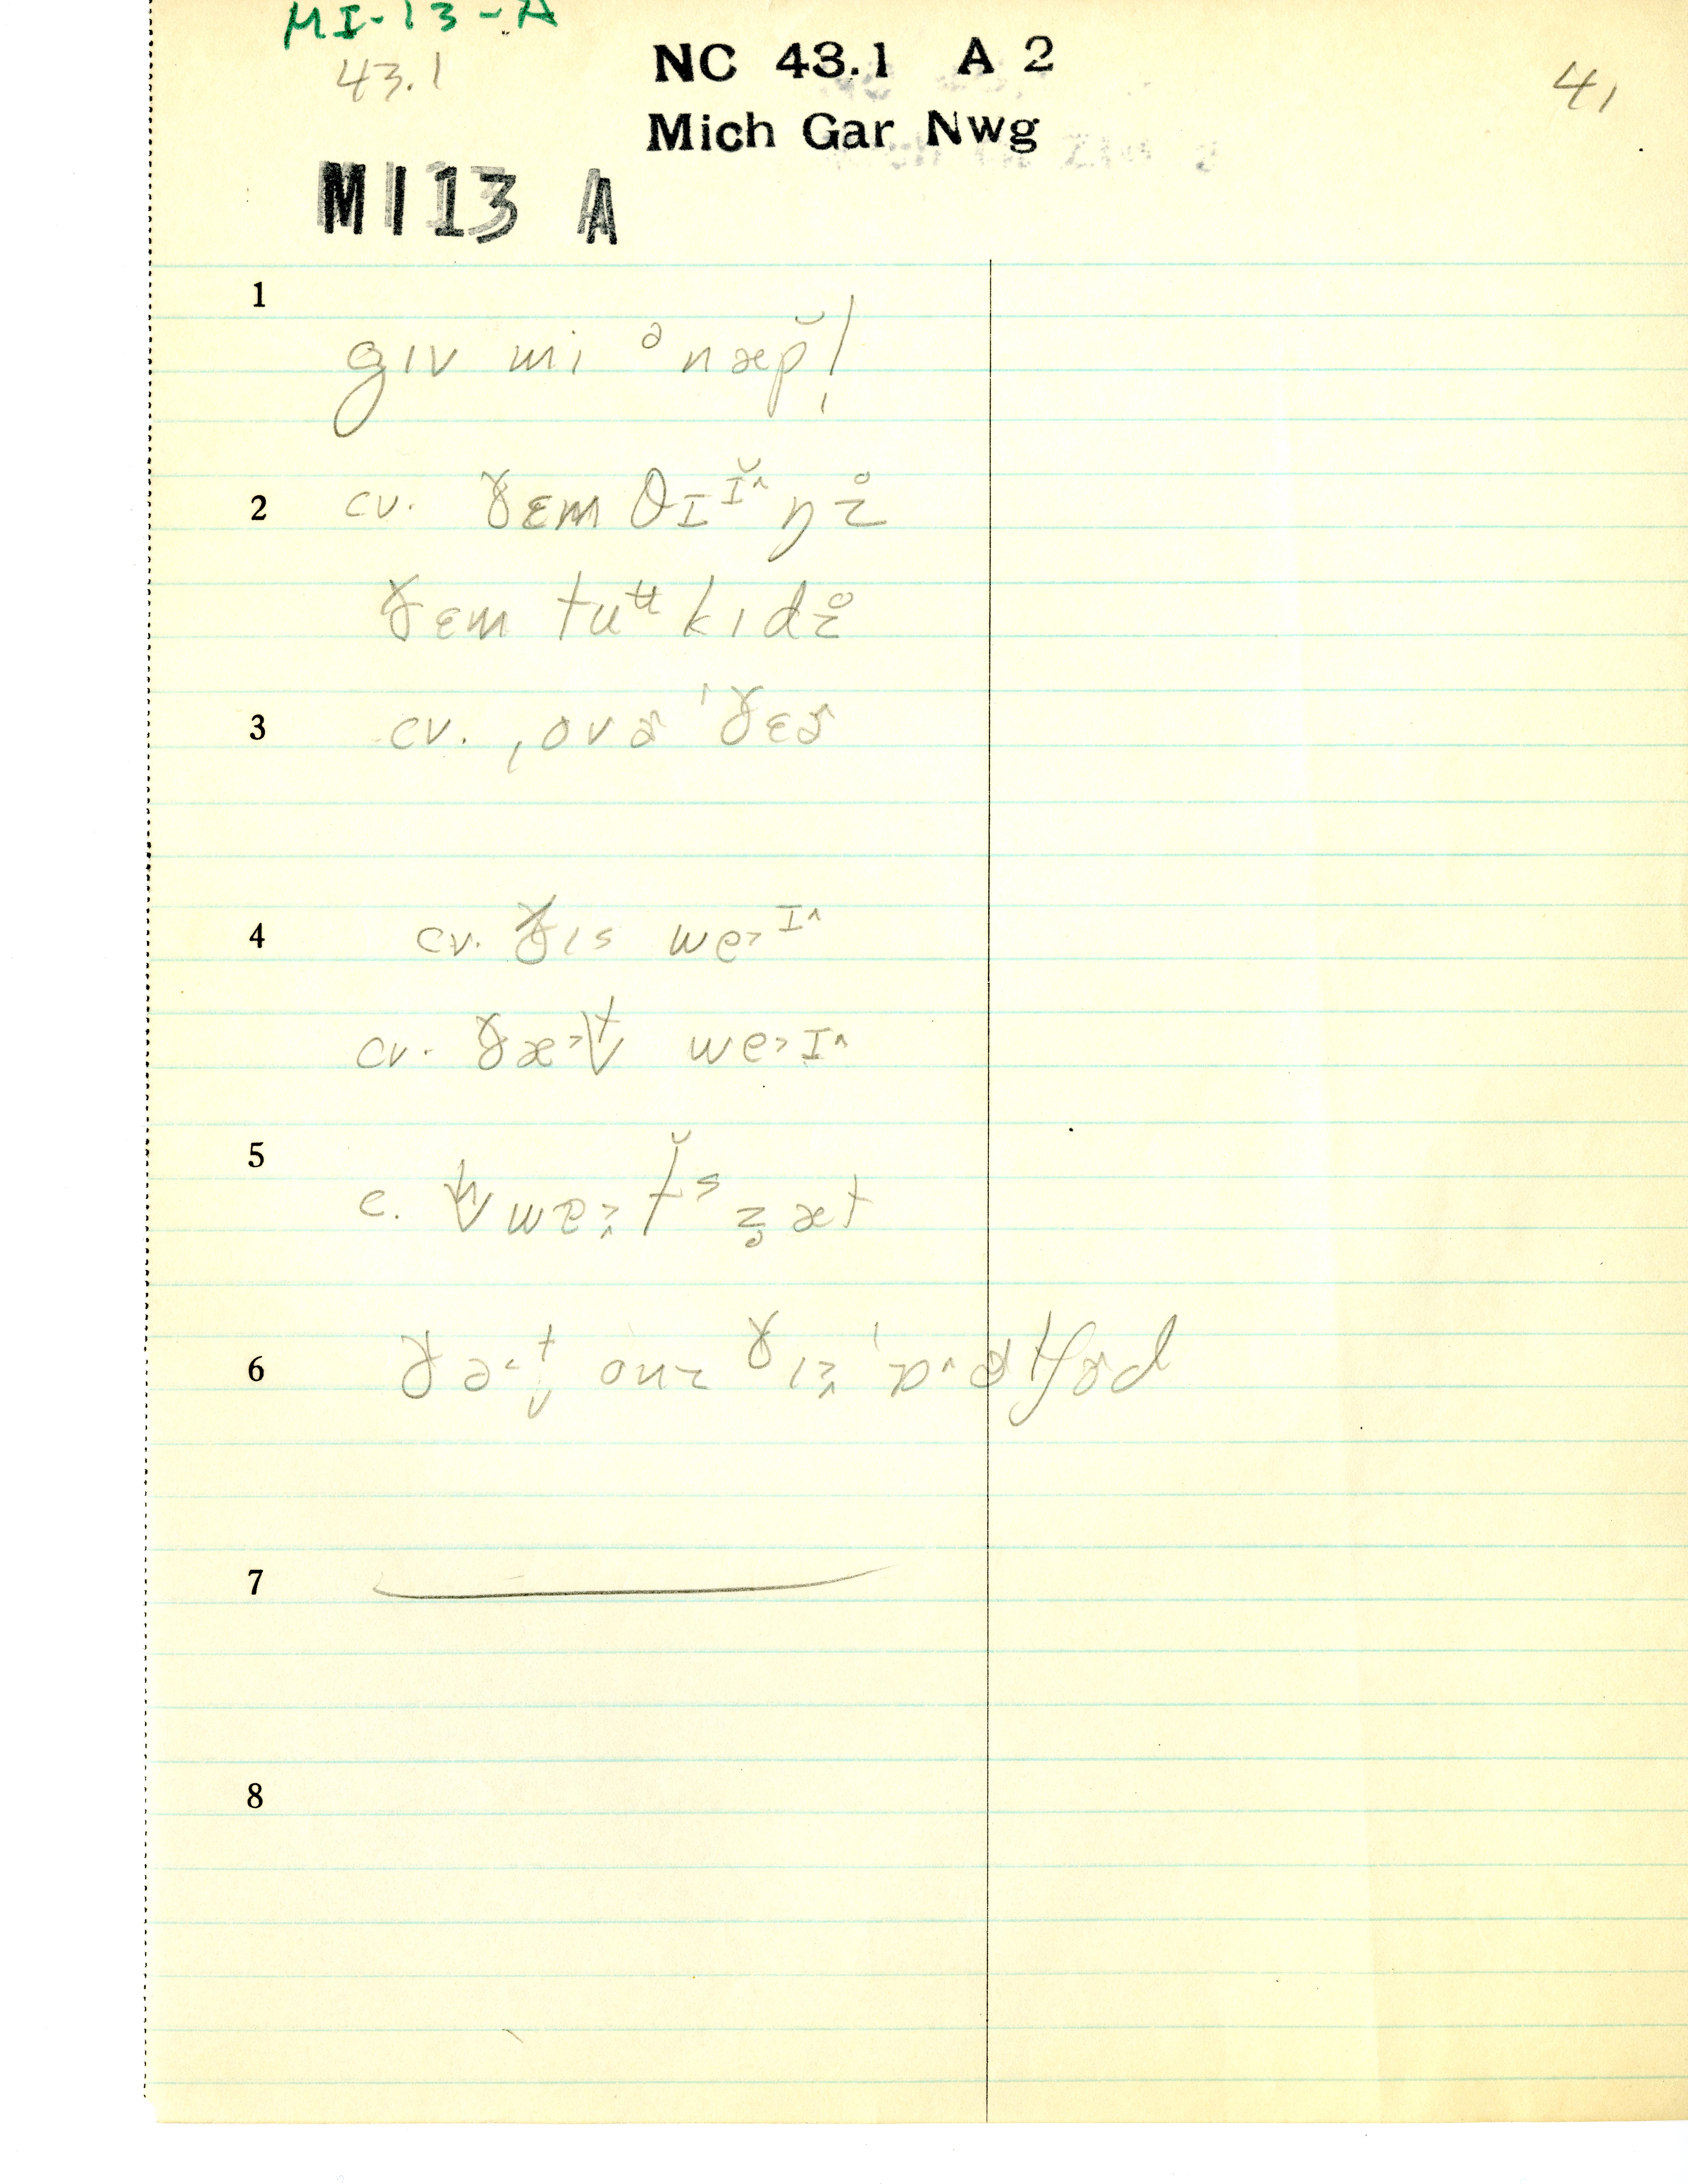 MI-13-A
43.1
NC 43.1 A 2
Mich Gar Nwg
41
MI 13 A
1
gɪv mi ᵊnæp̆!
2 cv. ðɛm θɪɪ̆^ŋz̥
ðɛm tuᵘkɪdz̥
3 cv. ˌovɚ ˈðɛɚ
4 cv. ðɪs we˃ɪ^
cv. ðæ˃t̬ we˃ɪ^
5
c. we˃t̆ˢ z̥æt
6 ðə˂t̬ ðɪz
7
8